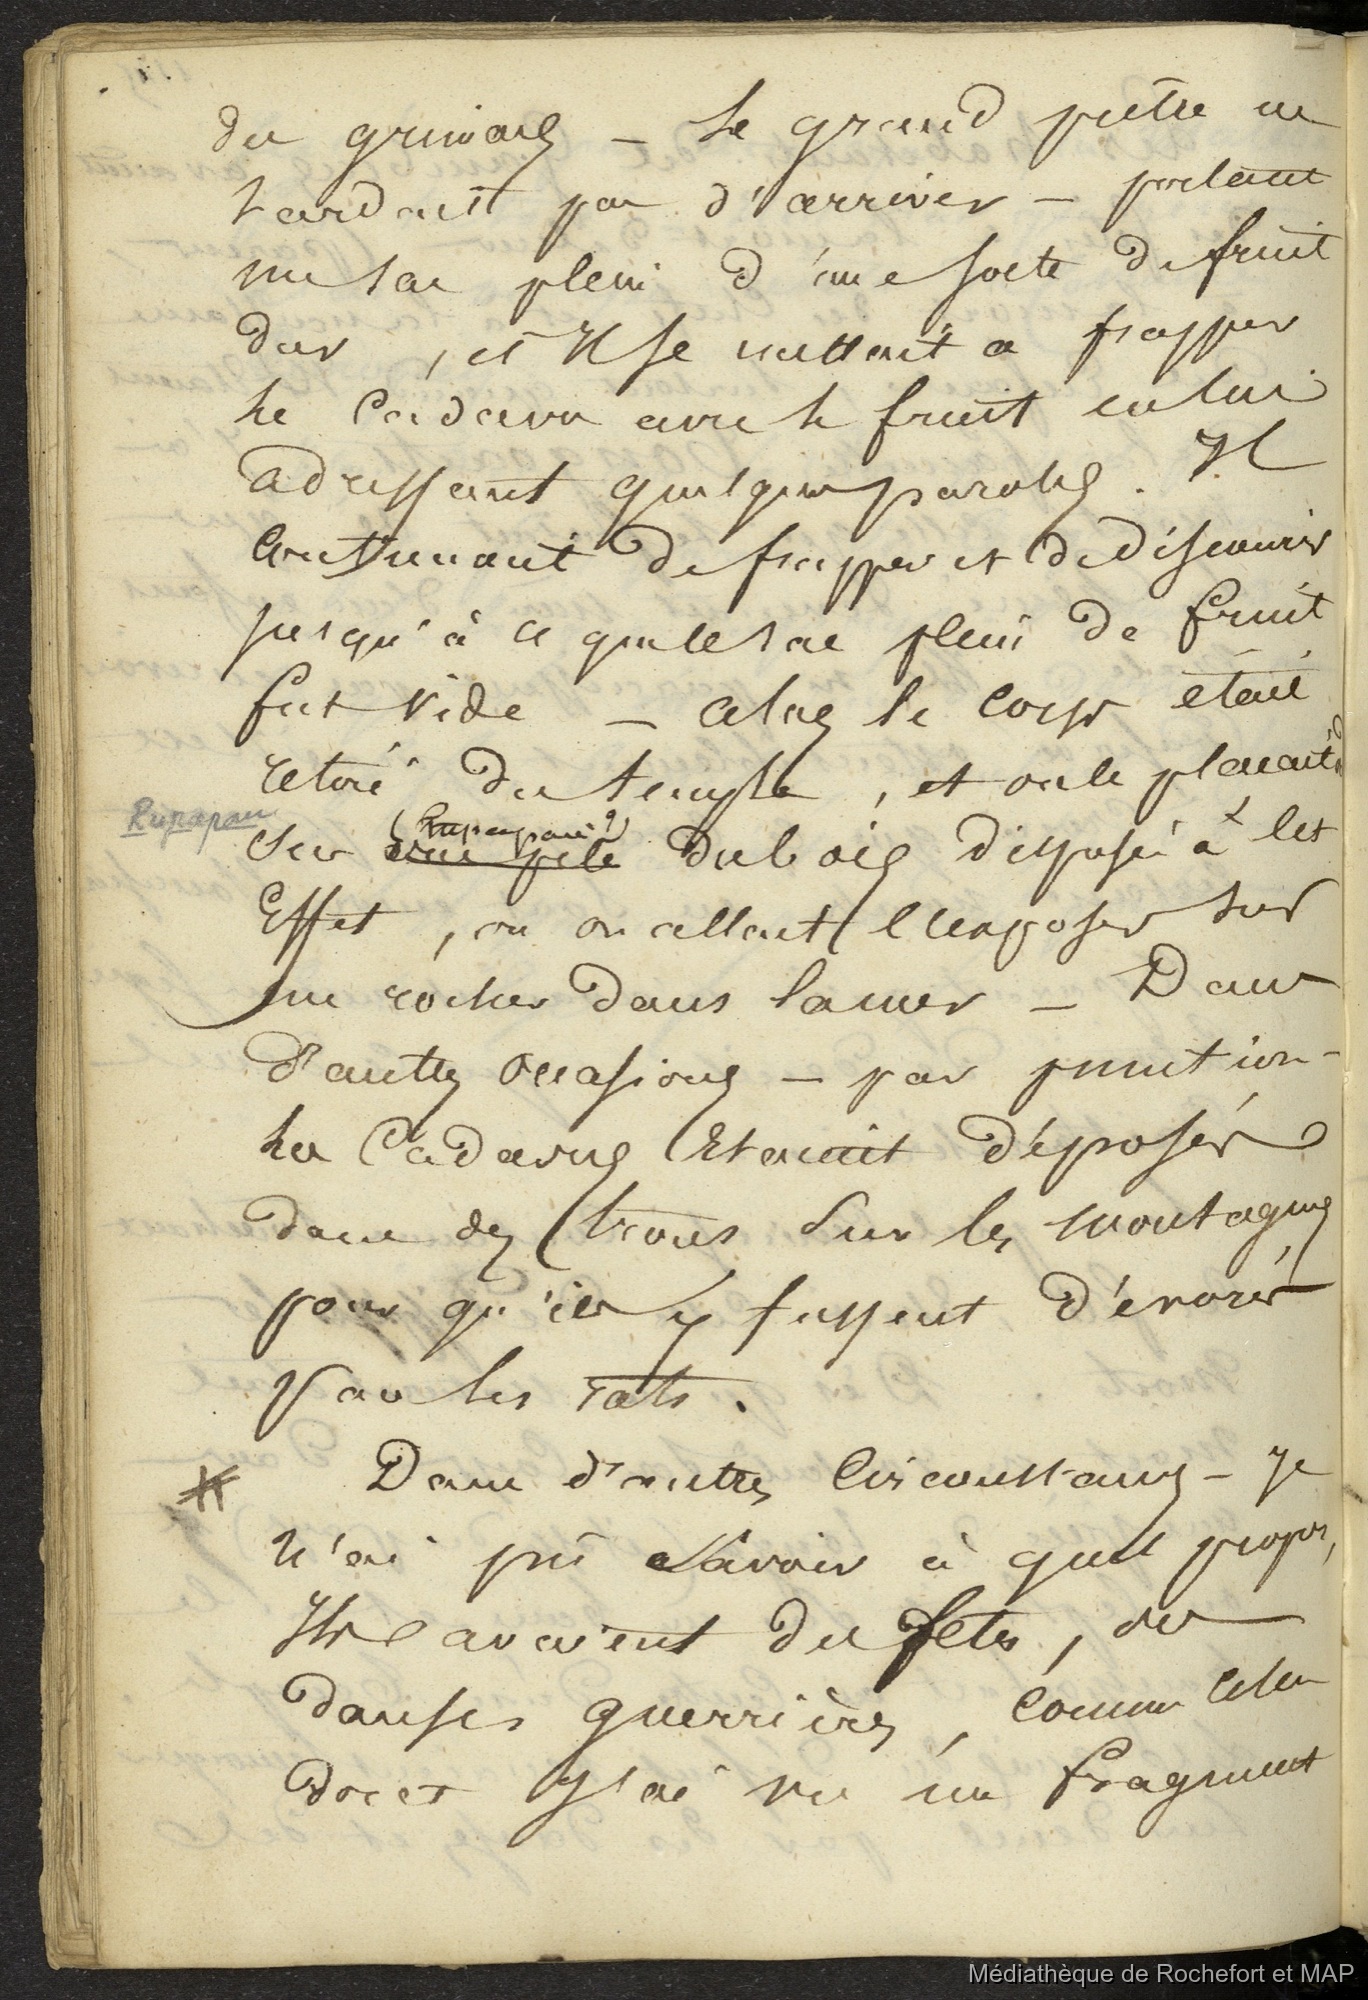 des grimaces – Le grand prêtre ne
tardait pas d'arriver – portant
un sac plein d'une sorte de fruit
dur, et Il se mettait a frapper
le Cadavre avec le fruit en lui
adressant quelques paroles. Il
Continuait de frapper et de discourir
jusqu'à ce que le sac plein de fruit
fut vide – alors le corps était
retiré du temple, et on le placait
Rupapau
(Rupapau?)
sur une pile du bois disposé à cet
Effet, ou on allait l'exposer sur
un rocher dans la mer – Dans
d'autres occasions – par punition –
les Cadavres Etaient déposés
dans des trous sur les montagnes
pour qu'ils y fussent dévorés
par les rats.
Dans d'autres Circonstances – je
n'ai pû savoir à quel propos,
Ils avaient des fêtes, des
danses guerrières, comme celle
dont j'ai vu un fragment
Médiathèque de Rochefort et MAP